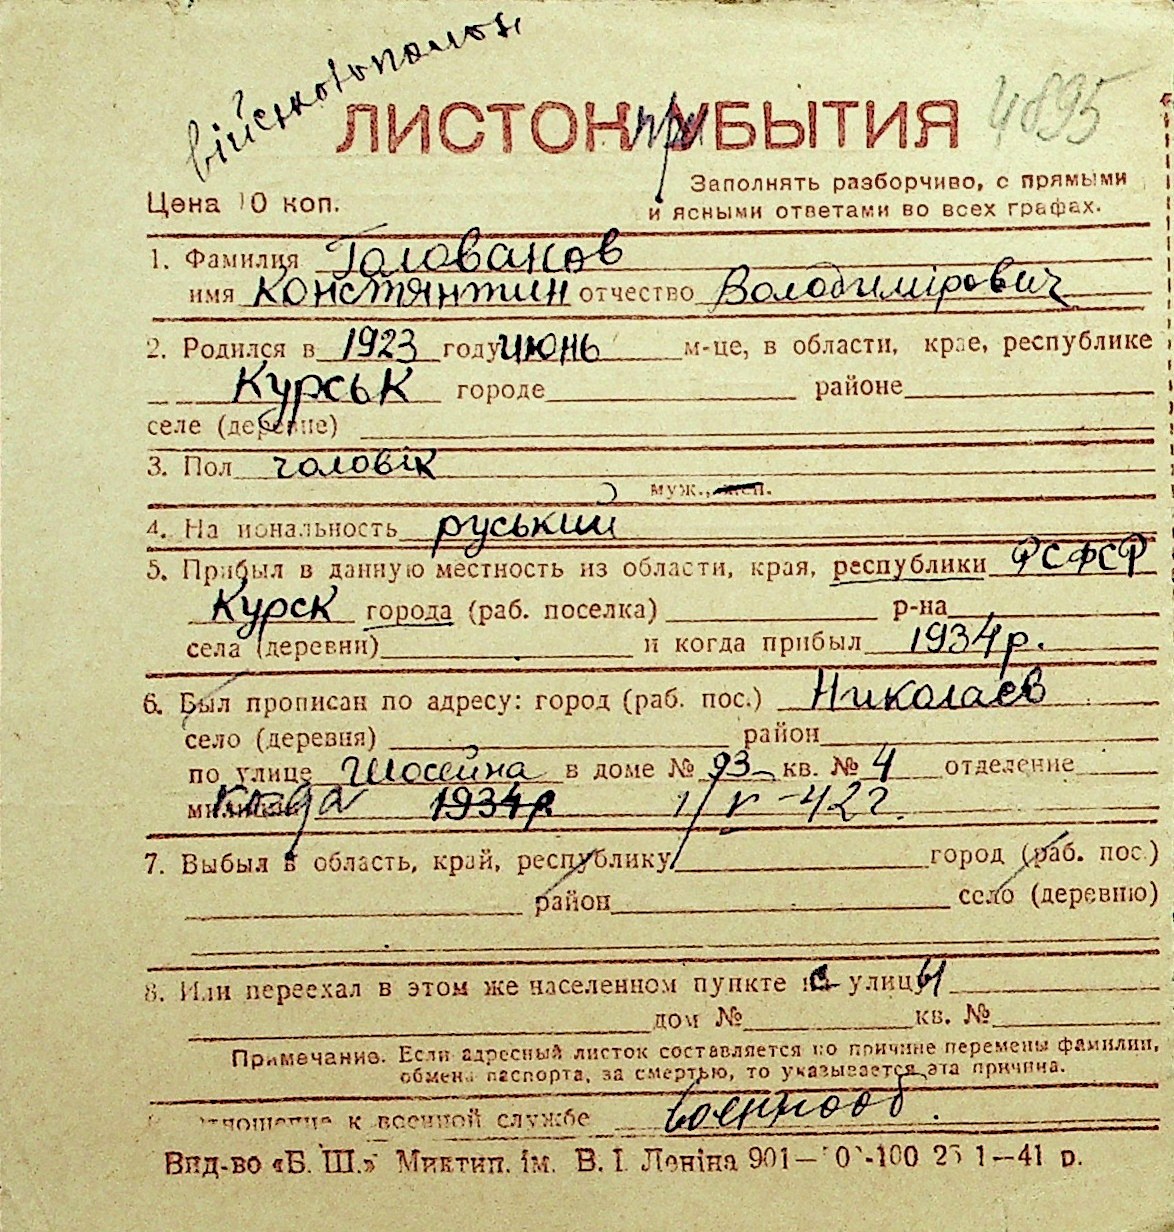 військовополон
ЛИСТОК при УБЫТИЯ 4895
Цена 10 коп.
Заполнять разборчиво, с прямыми
и ясными ответами во всех графах.
1. Фамилия Голованов
имя Констянтин отчество Володимірович
2. Родился в 1923 году июнь м-це, в области, крае, республике
Курськ городе районе
селе (деревне)
3. Пол чоловік
муж., жен.
4. Национальность руський
5. Прибыл в данную местность из области, края, республики РСФСР
Курск города (раб. поселка) р-на
села (деревни) и когда прибыл 1934 р.
6. Был прописан по адресу: город (раб. пос.) Николаев
село (деревня) район
по улице Шосейна в доме № 93 кв. № 4 отделение
милиции когда 1934 р 1/V-42 г.
7. Выбыл в область, край, республику город (раб. пос.)
район село (деревню)
8. Или переехал в этом же населенном пункте с улицы
дом № кв. №
Примечание. Если адресный листок составляется по причине перемены фамилии,
обмена паспорта, за смертью, то указывается эта причина.
Отношение к военной службе военнооб.
Вид-во «Б. Ш.» Миктип. ім. В. І. Леніна 901— -100 25 1—41 р.